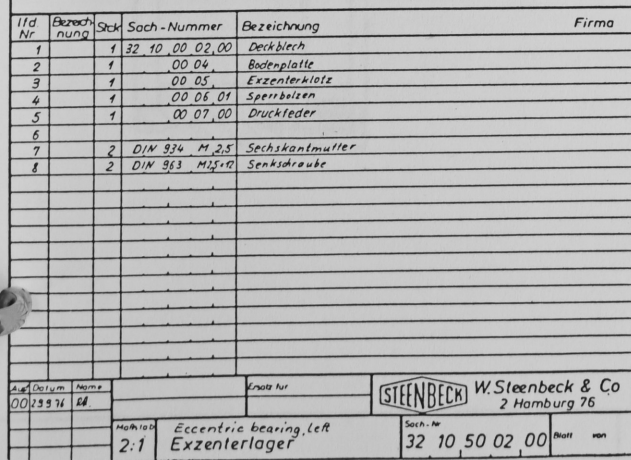 lfd. Nr Bezeichnung Stck Sach-Nummer Bezeichnung Firma
1 1 32 10 00 02,00 Deckblech
2 1 00 04 Bodenplatte
3 1 00 05 Exzenterklotz
4 1 00 06 01 Sperrbolzen
5 1 00 07 00 Druckfeder
6
7 2 DIN 934 M 2,5 Sechskantmutter
8 2 DIN 963 M2,5×12 Senkschraube
Ausg Datum Name Ersatz für STEENBECK W. Steenbeck & Co
00 29 9 76 2 Hamburg 76
Maßstab Eccentric bearing, left Sach.-Nr
2:1 Exzenterlager 32 10 50 02 00 Blatt von